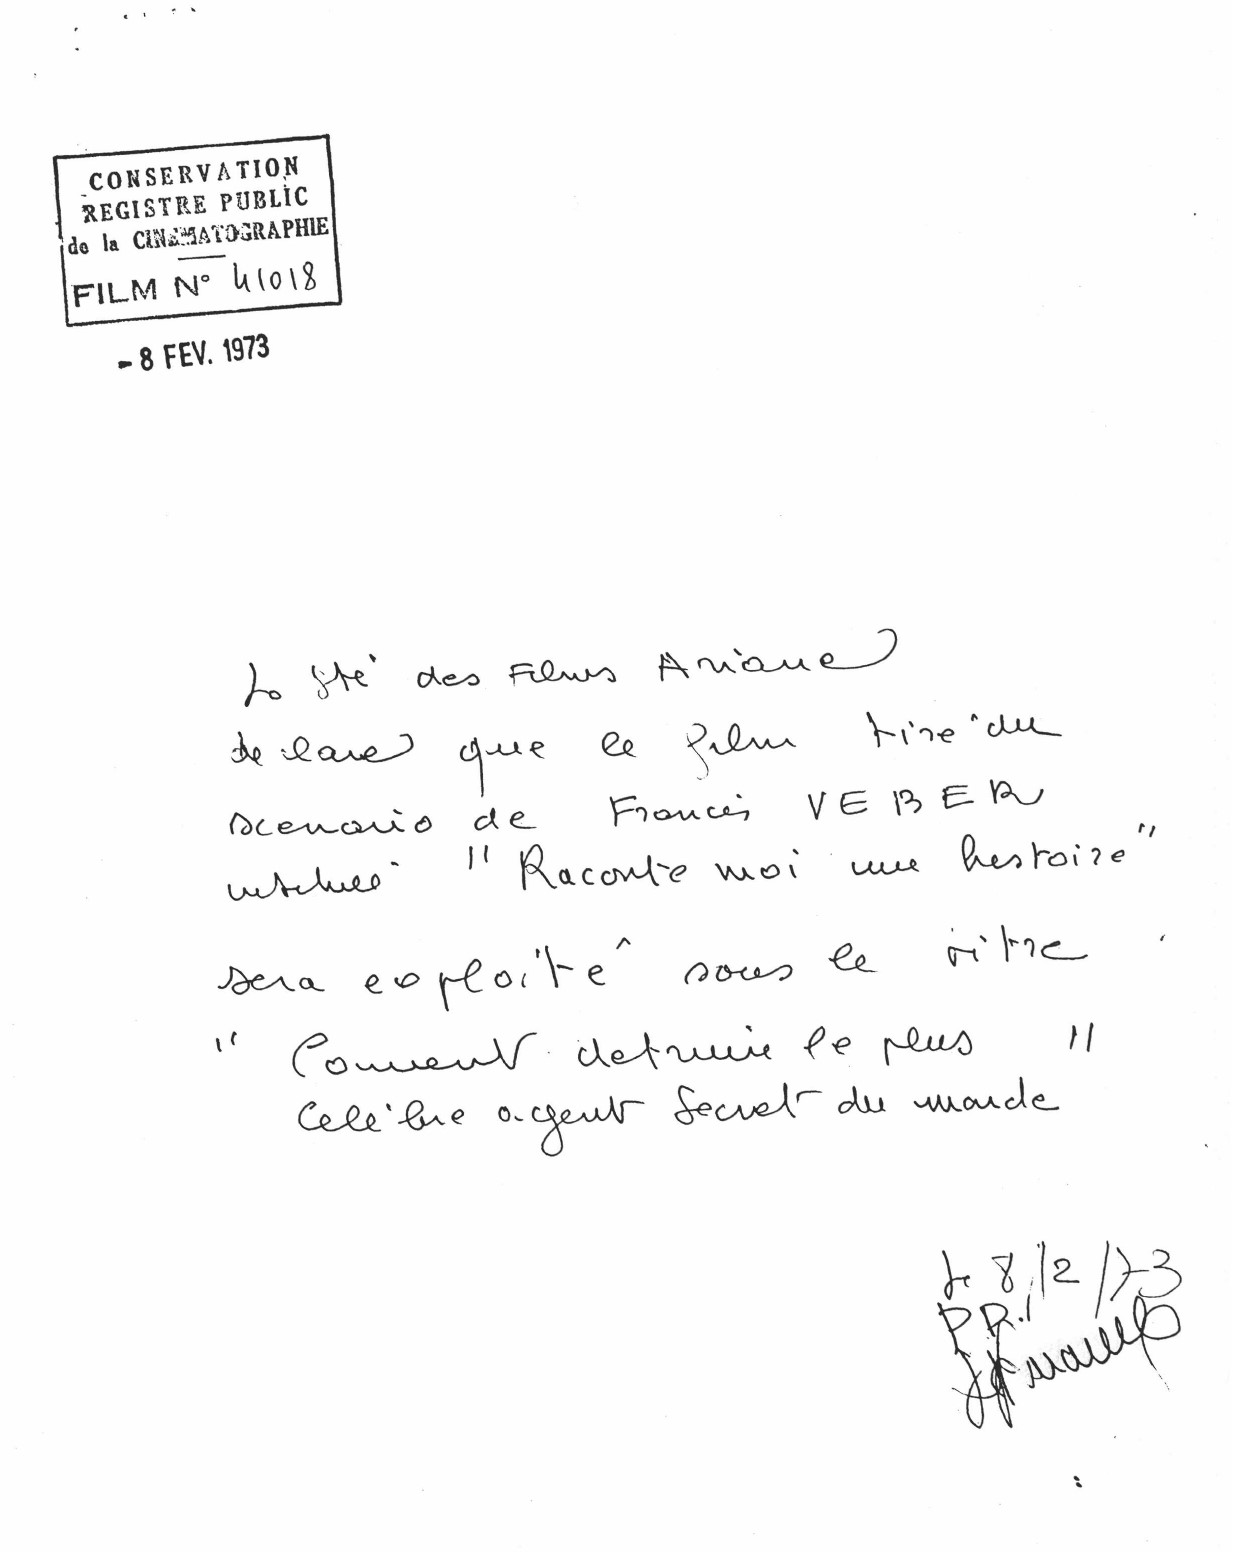 CONSERVATION
REGISTRE PUBLIC
de la CINÉMATOGRAPHIE
FILM N° 41018
- 8 FEV. 1973
La Sté des Films Ariane
declare que le film tiré du
scenario de Francis VEBER
intitulé "Raconte moi une histoire"
sera exploité sous le titre
" Comment detruire le plus "
Celèbre agent Secret du monde
Le 8/2/73
P.R.